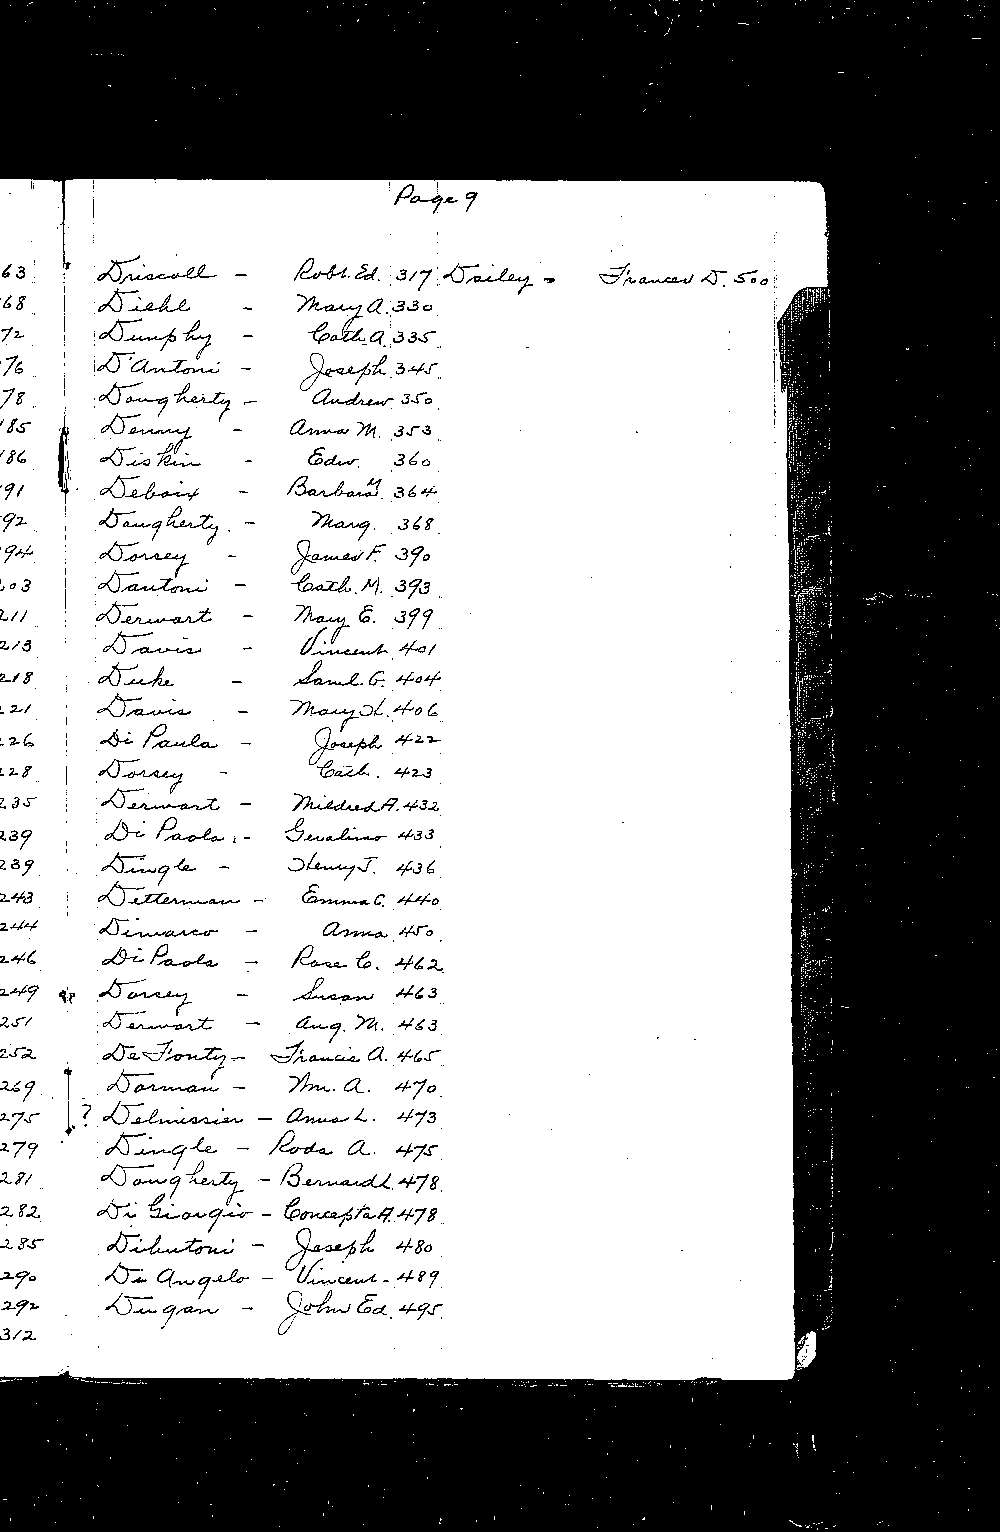 Page 9
63 Driscoll - Robt. Ed. 317 Dailey - Frances D. 500
68 Diehl - Mary A. 330
72 Dunphy - Cath. A. 335
76 D'Antoni - Joseph 345
78 Dougherty - Andrew 350
185 Denny - Anna M. 353
186 Diskin - Edw. 360
191 Deboix - Barbara M. 364
92 Dougherty - Marg. 368
94 Dorsey - James F. 390
203 Dantoni - Cath. M. 393
211 Derwart - Mary E. 399
213 Davis - Vincent 401
218 Duke - Saml. G. 404
221 Davis - Mary H. 406
226 Di Paula - Joseph 422
228 Dorsey - Cath. 423
235 Derwart - Mildred A. 432
239 Di Paola - Geralimo 433
239 Dingle - Henry J. 436
243 Detterman - Emma C. 440
244 Dimarco - Anna 450
246 Di Paola - Rose C. 462
249 Dorsey - Susan 463
251 Derwart - Aug. M. 463
252 De Fonty - Francis A. 465
269 Dorman - Wm. A. 470
275 ? Delmissier - Anna L. 473
279 Dingle - Roda A. 475
281 Dougherty - Bernard L. 478
282 Di Giorgio - Concepta A. 478
285 Dibutoni - Joseph 480
290 Di Angelo - Vincent - 489
292 Dugan - John Ed. 495
312